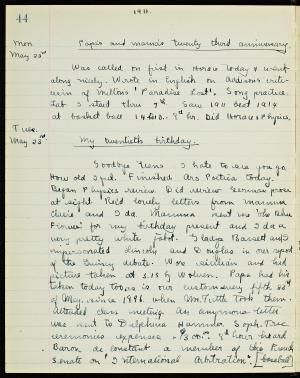 44
1911.
Mon. May 22nd Papa's and mama's twenty third anniversary.
Was called on first in Horace today & went
along nicely. Wrote in English on Addison's criti-
cism of Milton's 'Paradise Lost'. Song practice.
Lab I 7th. Saw 1911 beat 1914
at basket ball 8th hr. Did Horace & Physics.
Tues. May 23rd My twentieth birthday.
Goodbye Teens I hate to see you go
Finished Ars Poetica today.
Began Physics review. Did review German prose
at sight. Rec'd lovely letters from mamma
and Ida. Mamma sent me 'The Blue
Flower' for my birthday present and Ida a
very pretty white belt. Gladys Bassett
impersonated Lincoln and Douglas in our sport
of the Quincy debate. Wore and had
pictures taken at 3.15 by Papa had his
taken today too as is our customary
of May, since 1896, when Mr. Tuttle took them.
Attended class meeting. An anonymous letter
was sent to Delphina Soph. Tree
ceremonies expenses 8th hour heard
Baron de Constant a member of the French
Senate on 'International Arbitration'. [baseball]